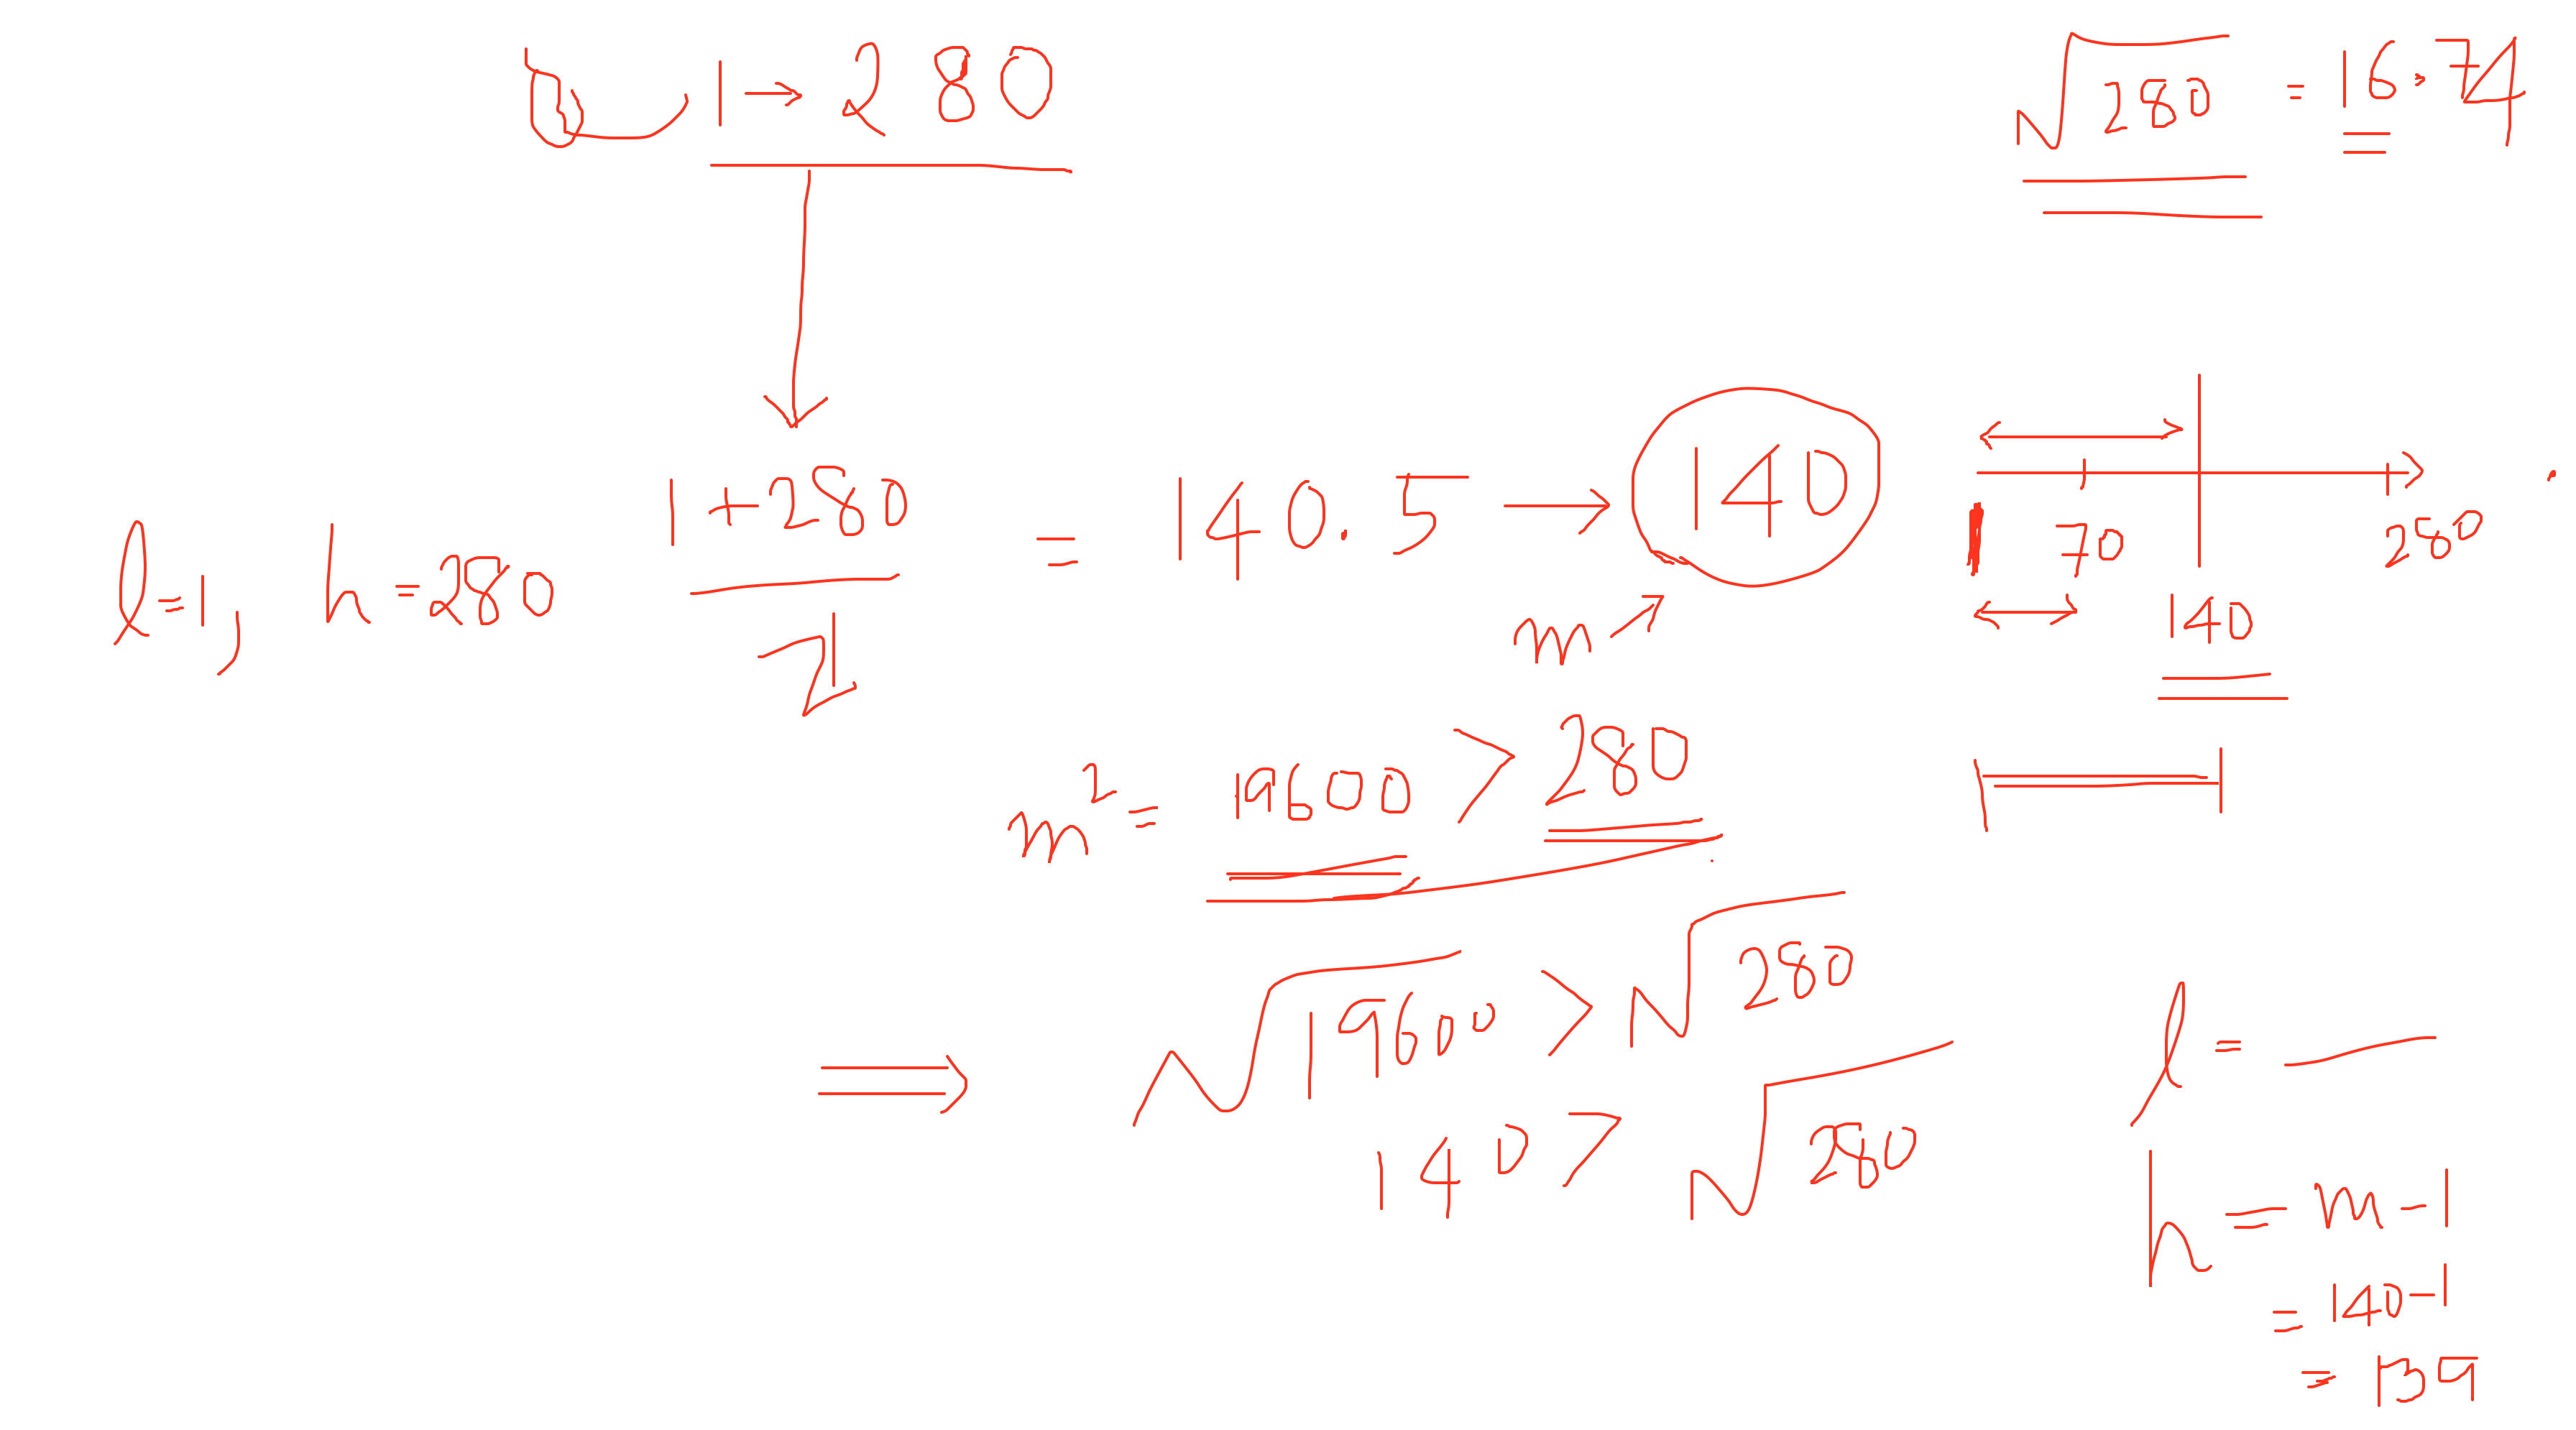 1 → 280
√280 = 16.74
l=1, h=280
1+280 / 2 = 140.5 → 140
m
70 280
140
m² = 19600 > 280
⟹ √19600 > √280
140 > √280
l =
h = m-1
= 140-1
= 139